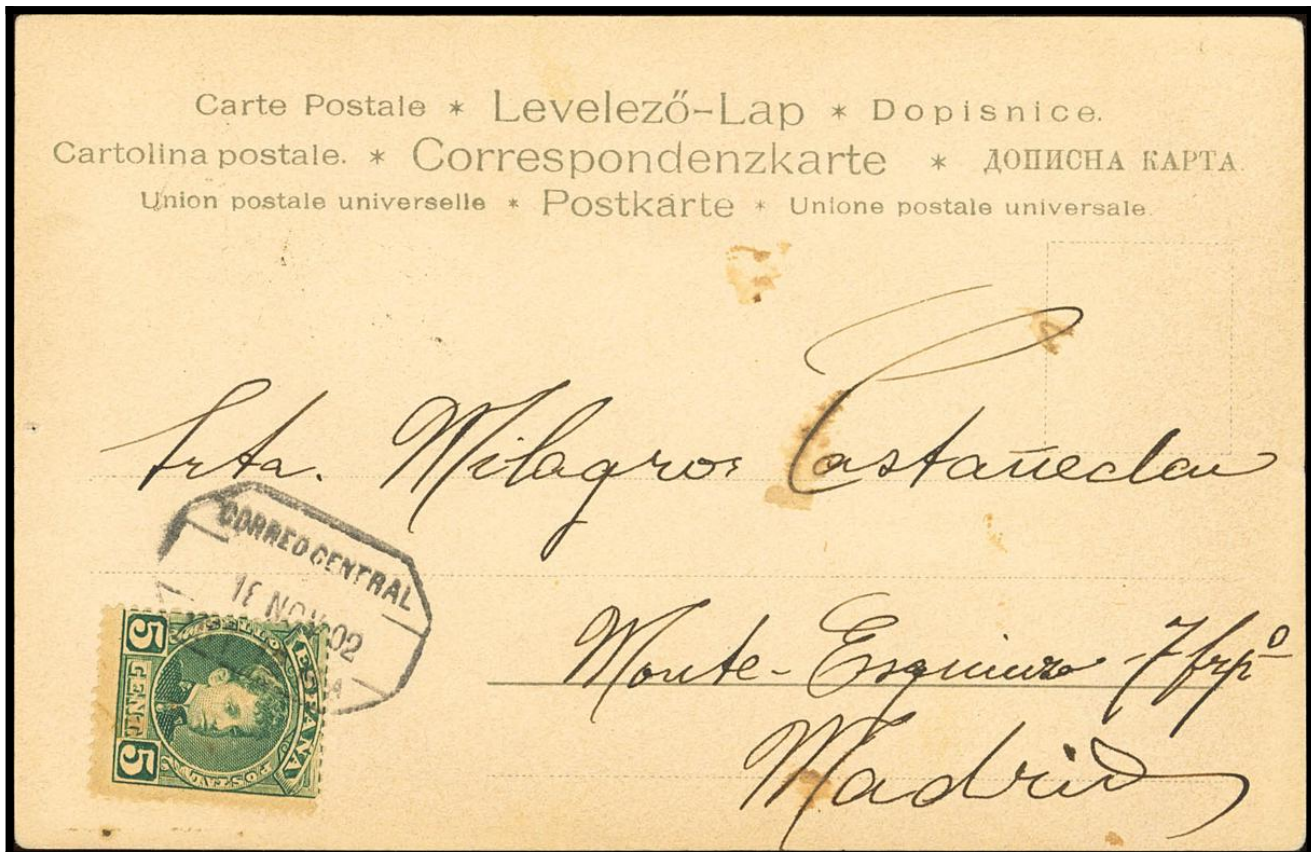 Carte Postale * Levelező-Lap * Dopisnice.
Cartolina postale. * Correspondenzkarte * ДОПИСНА КАРТА.
Union postale universelle * Postkarte * Unione postale universale.
Srta. Milagros Castañeda
CORREO CENTRAL
NOV 02
5 CENT 5
SELLO
ESPAÑA
POSTAL
Monte-Esquinza 7
Madrid